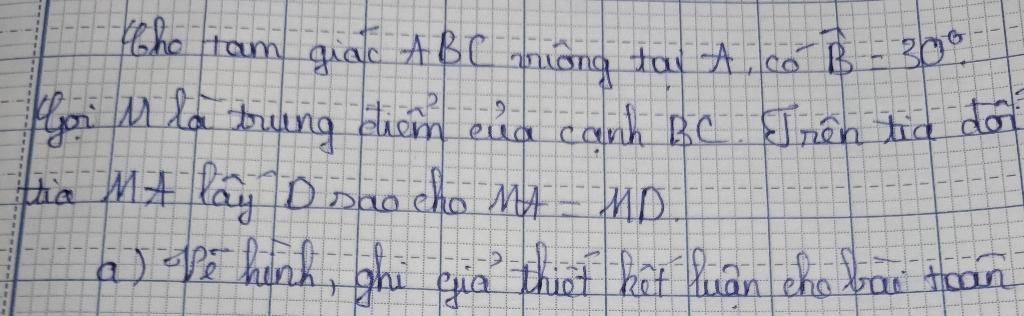 Cho tam giác ABC vuông tại A, có B̂ = 30°.
Gọi M là trung điểm của cạnh BC. Trên tia đối
tia MA lấy D sao cho MA = MD.
a) Vẽ hình, ghi giả thiết kết luận cho bài toán